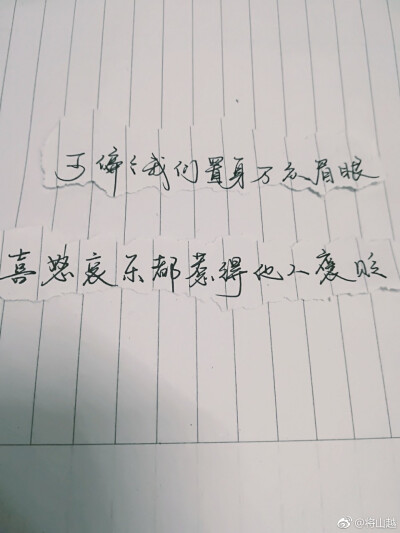 可偏々我们置身万众眉眼
喜怒哀乐都惹得他人褒贬
@将山越